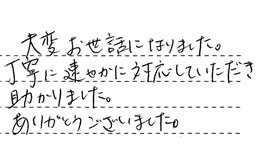 大変お世話になりました。
丁寧に速やかに対応していただき
助かりました。
ありがとうございました。